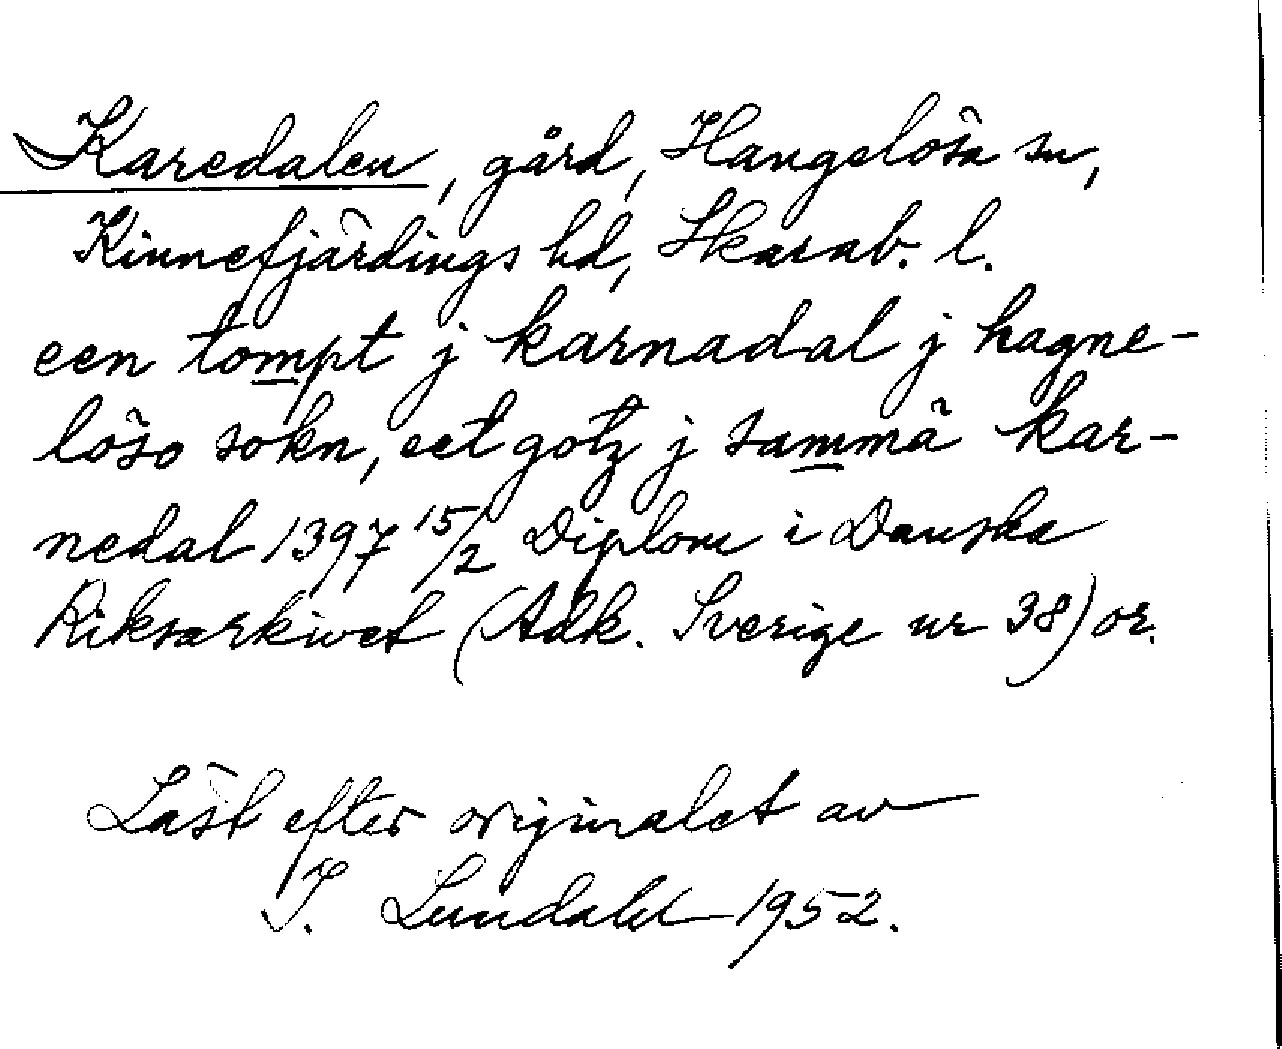 Karedalen, gård, Hangelösa sn,
Kinnefjärdings hd, Skarab. l.
een tompt j karnadal j hagne-
löso sokn, eet gotz j samma kar-
nedal 1397 15/2 Diplom i Danska
Riksarkivet (Adk. Sverige nr 38) or.
Läst efter originalet av
I. Lundahl 1952.